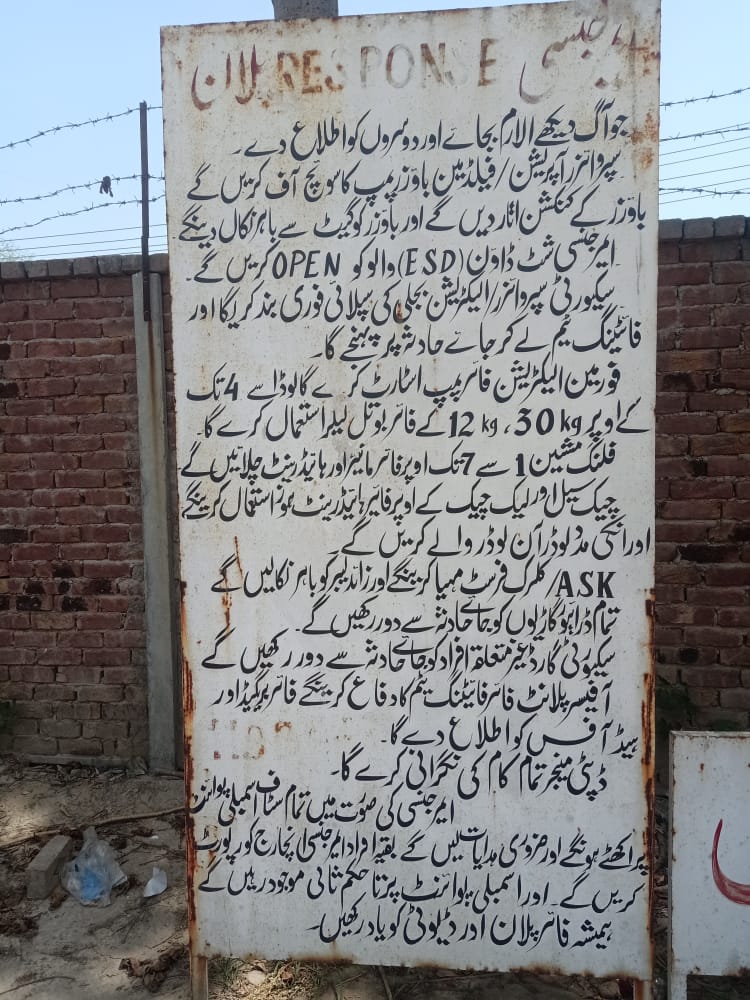 ایمرجنسی RESPONSE پلان
جو آگ دیکھے الارم بجائے اور دوسروں کو اطلاع دے۔
سپروائزر آپریشن/فیلڈ مین باؤزر پمپ کا سوئچ آف کریں گے
باؤزر کے کنکشن اتار دیں گے اور باؤزر کو گیٹ سے باہر نکال دینگے
ایمرجنسی شٹ ڈاؤن (ESD) والو کو OPEN کریں گے۔
سیکورٹی سپروائزر/الیکٹریشن بجلی کی سپلائی فوری بند کریگا اور
فائٹنگ ٹیم لے کر جائے حادثہ پر پہنچے گا۔
فورمین الیکٹریشن فائر پمپ اسٹارٹ کرے گا لوڈا سے 4 تک
کے اوپر 30 kg ، 12 kg کے فائر بوتل لیکر استعمال کرے گا۔
فلنگ مشین 1 سے 7 تک اوپر فائر مانیٹر اور ہائیڈرینٹ چلائیں گے
چیک سیل اور لیک چیک کے اوپر فائیر ہائیڈرینٹ ہوز استعمال کرینگے
اور انکی مدد لوڈر آن لوڈر والے کریں گے۔
ASK/کلرک فرسٹ مہیا کرینگے اور زائد لیبر کو باہر نکالیں گے
تمام ڈرائیور گاڑیوں کو جائے حادثہ سے دور رکھیں گے۔
سکیورٹی گارڈ غیر متعلقہ افراد کو جائے حادثہ سے دور رکھیں گے
آفیسر پلانٹ فائر فائیٹنگ ٹیم کا دفاع کرینگے فائر بریگیڈ اور
ہیڈ آفس کو اطلاع دے گا۔
ڈپٹی منیجر تمام کام کی نگرانی کرے گا۔
ایمرجنسی کی صورت میں تمام سٹاف اسمبلی پوائنٹ
پر اکھٹے ہونگے اور ضروری ہدایات لیں گے بقیہ افراد ایمرجنسی انچارج کو رپورٹ
کریں گے۔ اور اسمبلی پوائنٹ پر تا حکم ثانی موجود رہیں گے
ہمیشہ فائر پلان اور ڈیوٹی کو یاد رکھیں۔